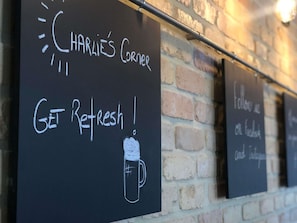 Charlie's Corner
Get Refresh!
#
Follow us
on Facebook
and Instagram